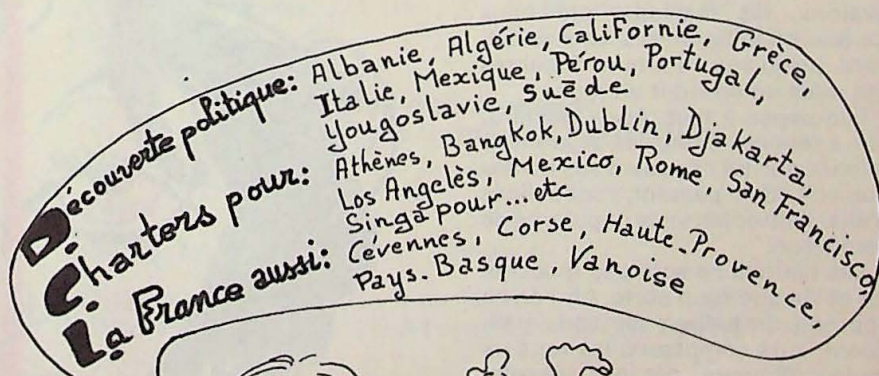 Découverte politique: Albanie, Algérie, Californie, Grèce,
Italie, Mexique, Pérou, Portugal,
Yougoslavie, Suède
Charters pour: Athènes, Bangkok, Dublin, Djakarta,
Los Angelès, Mexico, Rome, San Francisco,
Singapour...etc
La France aussi: Cévennes, Corse, Haute-Provence,
Pays-Basque, Vanoise